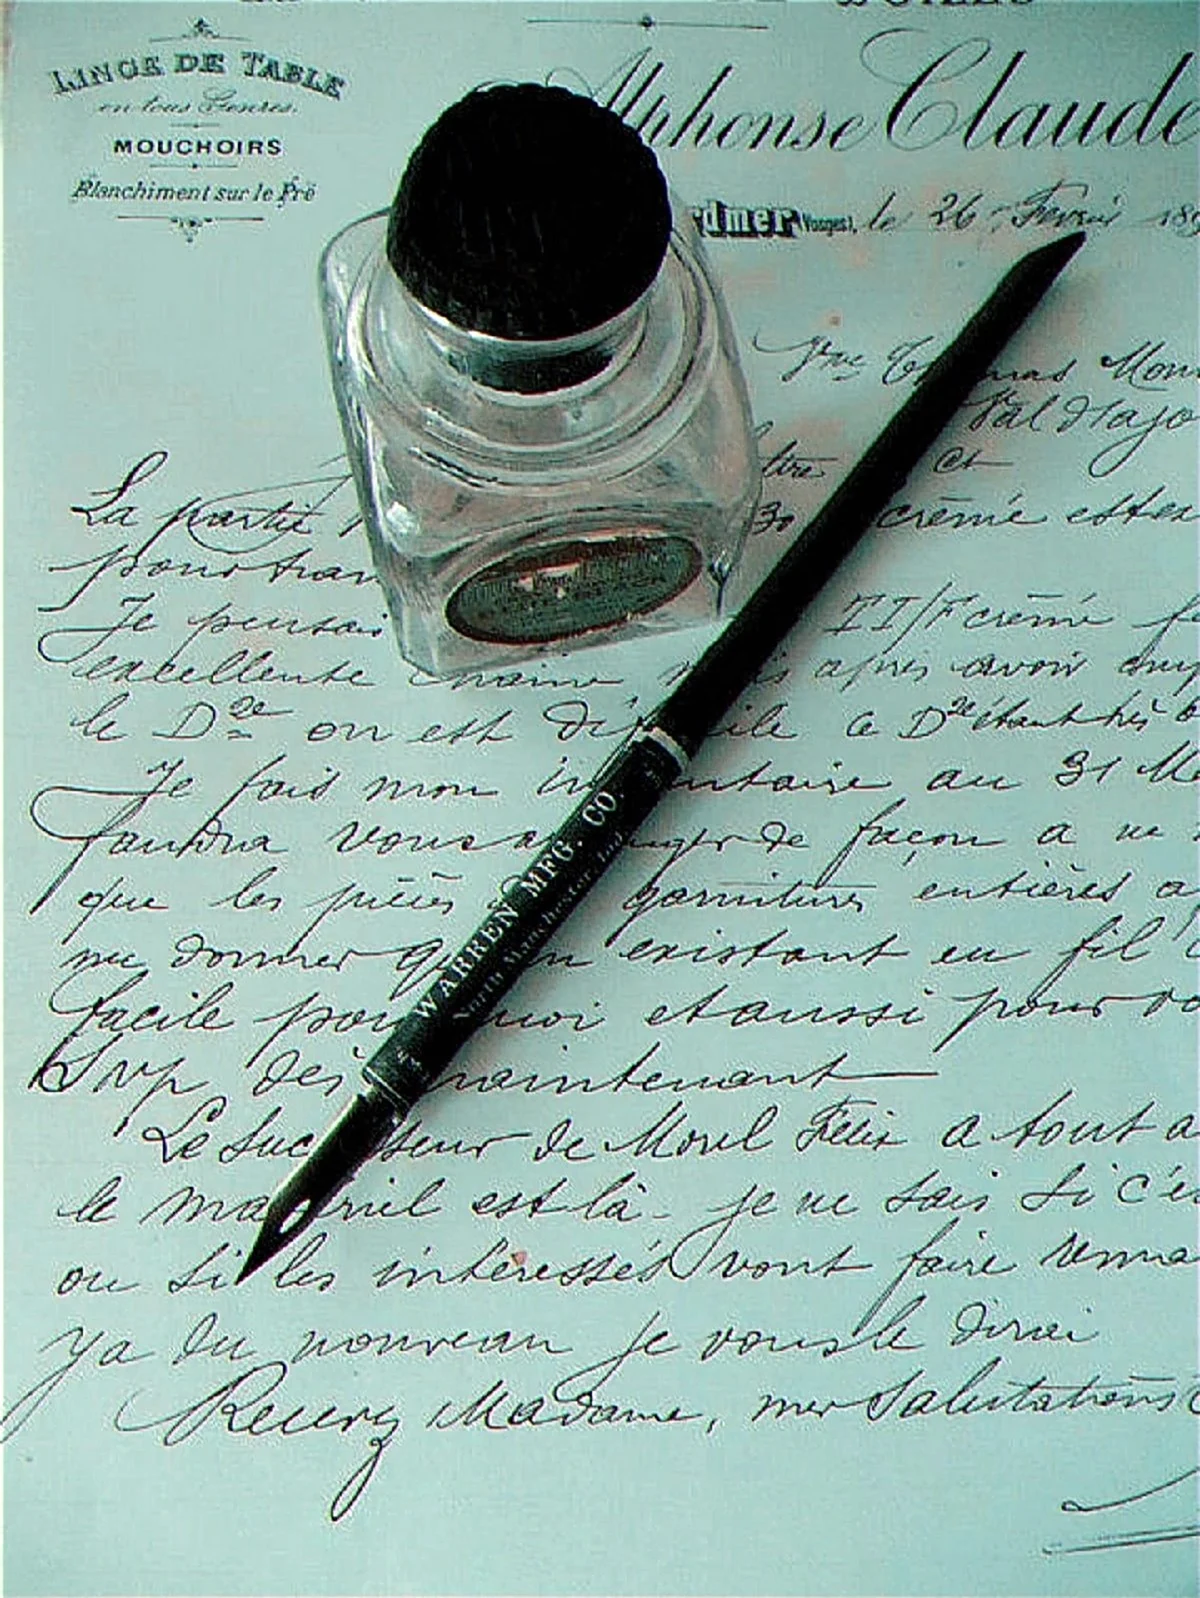 LINGE DE TABLE
en tous Genres.
MOUCHOIRS
Blanchiment sur le Pré
Alphonse Claude
rdmer (Vosges), le 26 Fevrier 189
Vve Thomas
Val d'ajo
La partie 30 crémé est en
pour tra
Je pensais II/F crémé
excellente chaine mais après avoir
le Dze on est ce Dze étant très
Je fais mon inventaire au 31 M
faudra vous arranger de façon a ne
que les pièces garnitures entières
me donner existant en fil
facile pour moi et aussi pour vo
Svp dès maintenant
Le successeur de Morel Félix a tout a
le matériel est là - je ne sais si c'e
ou si les intéressés vont faire
ya du nouveau je vous le dirai
Recevez Madame, mes Salutations
WARREN MFG. CO.
North Manchester, Ind.